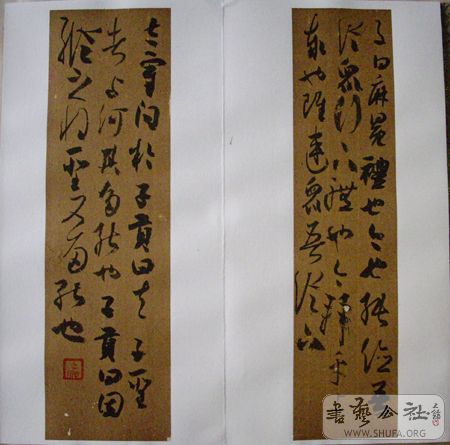 子曰麻冕禮也今也純儉吾
從眾拜下禮也今拜乎上
泰也雖違眾吾從下
太宰問於子貢曰夫子聖
者與何其多能也子貢曰固
縱之將聖又多能也
書藝公社
WWW.SHUFA.ORG